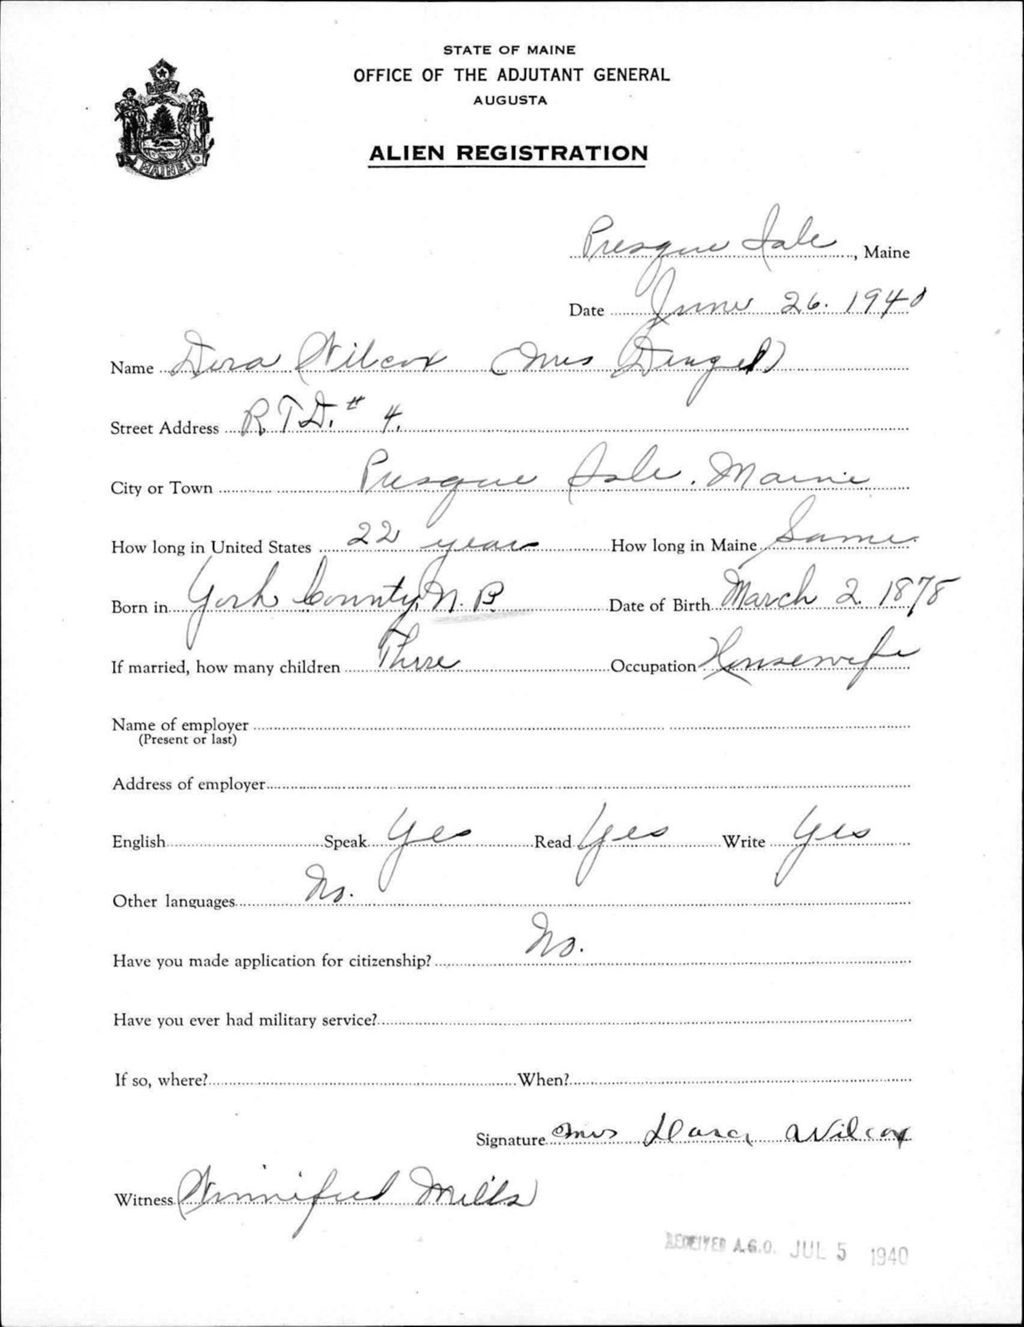 STATE OF MAINE
OFFICE OF THE ADJUTANT GENERAL
AUGUSTA
ALIEN REGISTRATION
MAINE
Presque Isle, Maine
Date June 26. 1940
Name Dora Wilcox (Mrs )
Street Address R.F.D. # 4.
City or Town Presque Isle. Maine
How long in United States 22 years How long in Maine Same
Born in York County, N.B. Date of Birth March 2 1878
If married, how many children Three Occupation Housewife
Name of employer
(Present or last)
Address of employer
English Speak Yes Read Yes Write Yes
Other languages No.
Have you made application for citizenship? No.
Have you ever had military service?
If so, where? When?
Signature Mrs Dora Wilcox
Witness Winnifred Mills
RECEIVED A.G.O. JUL 5 1940